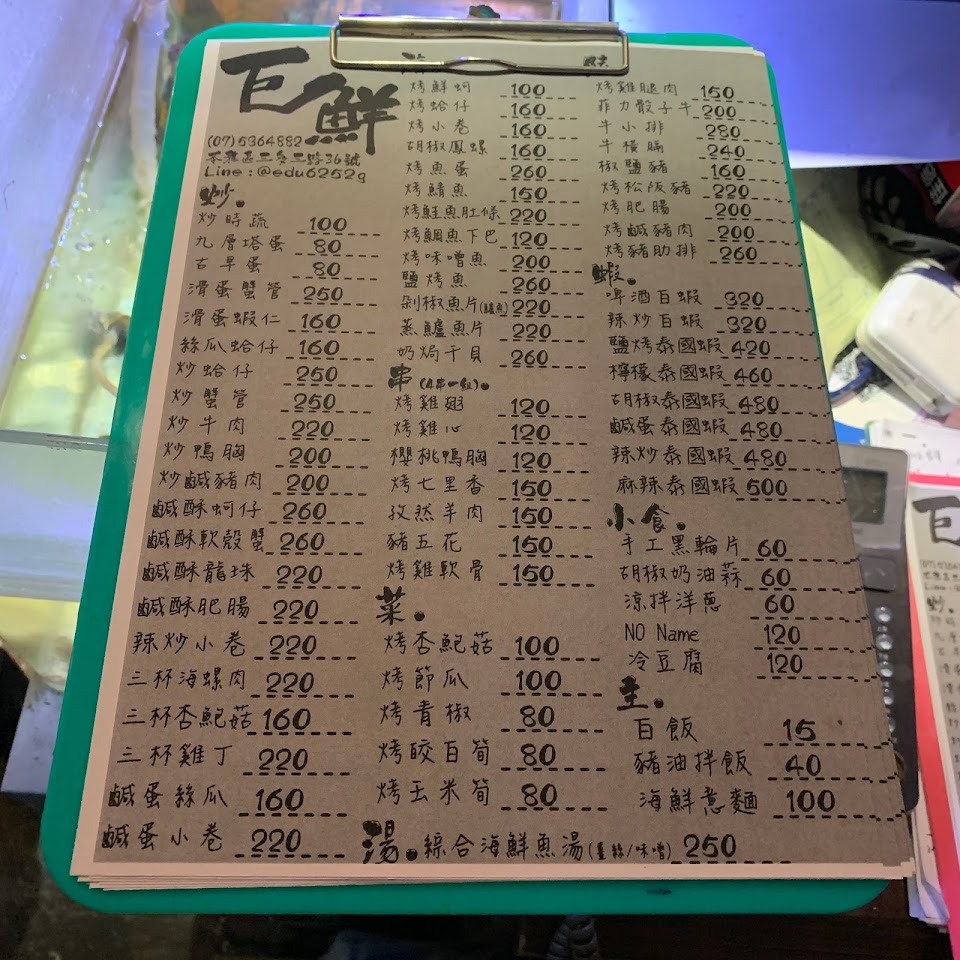 巨鮮
(07)5364882
苓雅區三多三路36號
Line : @edu6252g
炒.
炒時蔬 100
九層塔蛋 80
古早蛋 80
滑蛋蟹管 250
滑蛋蝦仁 160
絲瓜蛤仔 160
炒蛤仔 250
炒蟹管 250
炒牛肉 220
炒鴨胸 200
炒鹹豬肉 200
鹹酥蚵仔 260
鹹酥軟殼蟹 260
鹹酥龍珠 220
鹹酥肥腸 220
辣炒小卷 220
三杯海螺肉 220
三杯杏鮑菇 160
三杯雞丁 220
鹹蛋絲瓜 160
鹹蛋小卷 220
烤鮮蚵 100
烤蛤仔 160
烤小卷 160
胡椒鳳螺 160
烤魚蛋 260
烤鯖魚 150
烤鮭魚肚條 220
烤鯛魚下巴 120
烤味噌魚 200
鹽烤魚 260
剁椒魚片(鱸魚) 220
蒸鱸魚片 220
奶焗干貝 260
串.
烤雞翅 120
烤雞心 120
櫻桃鴨胸 120
烤七里香 150
孜然羊肉 150
豬五花 150
烤雞軟骨 150
菜.
烤杏鮑菇 100
烤節瓜 100
烤青椒 80
烤皎白筍 80
烤玉米筍 80
湯.綜合海鮮魚湯(薑絲/味噌) 250
烤雞腿肉 150
菲力骰子牛 200
牛小排 280
牛橫膈 240
椒鹽豬 160
烤松阪豬 220
烤肥腸 200
烤鹹豬肉 200
烤豬肋排 260
蝦.
啤酒白蝦 320
辣炒白蝦 320
鹽烤泰國蝦 420
檸檬泰國蝦 460
胡椒泰國蝦 480
鹹蛋泰國蝦 480
辣炒泰國蝦 480
麻辣泰國蝦 500
小食.
手工黑輪片 60
胡椒奶油蒜 60
涼拌洋蔥 60
NO Name 120
冷豆腐 120
主.
白飯 15
豬油拌飯 40
海鮮意麵 100